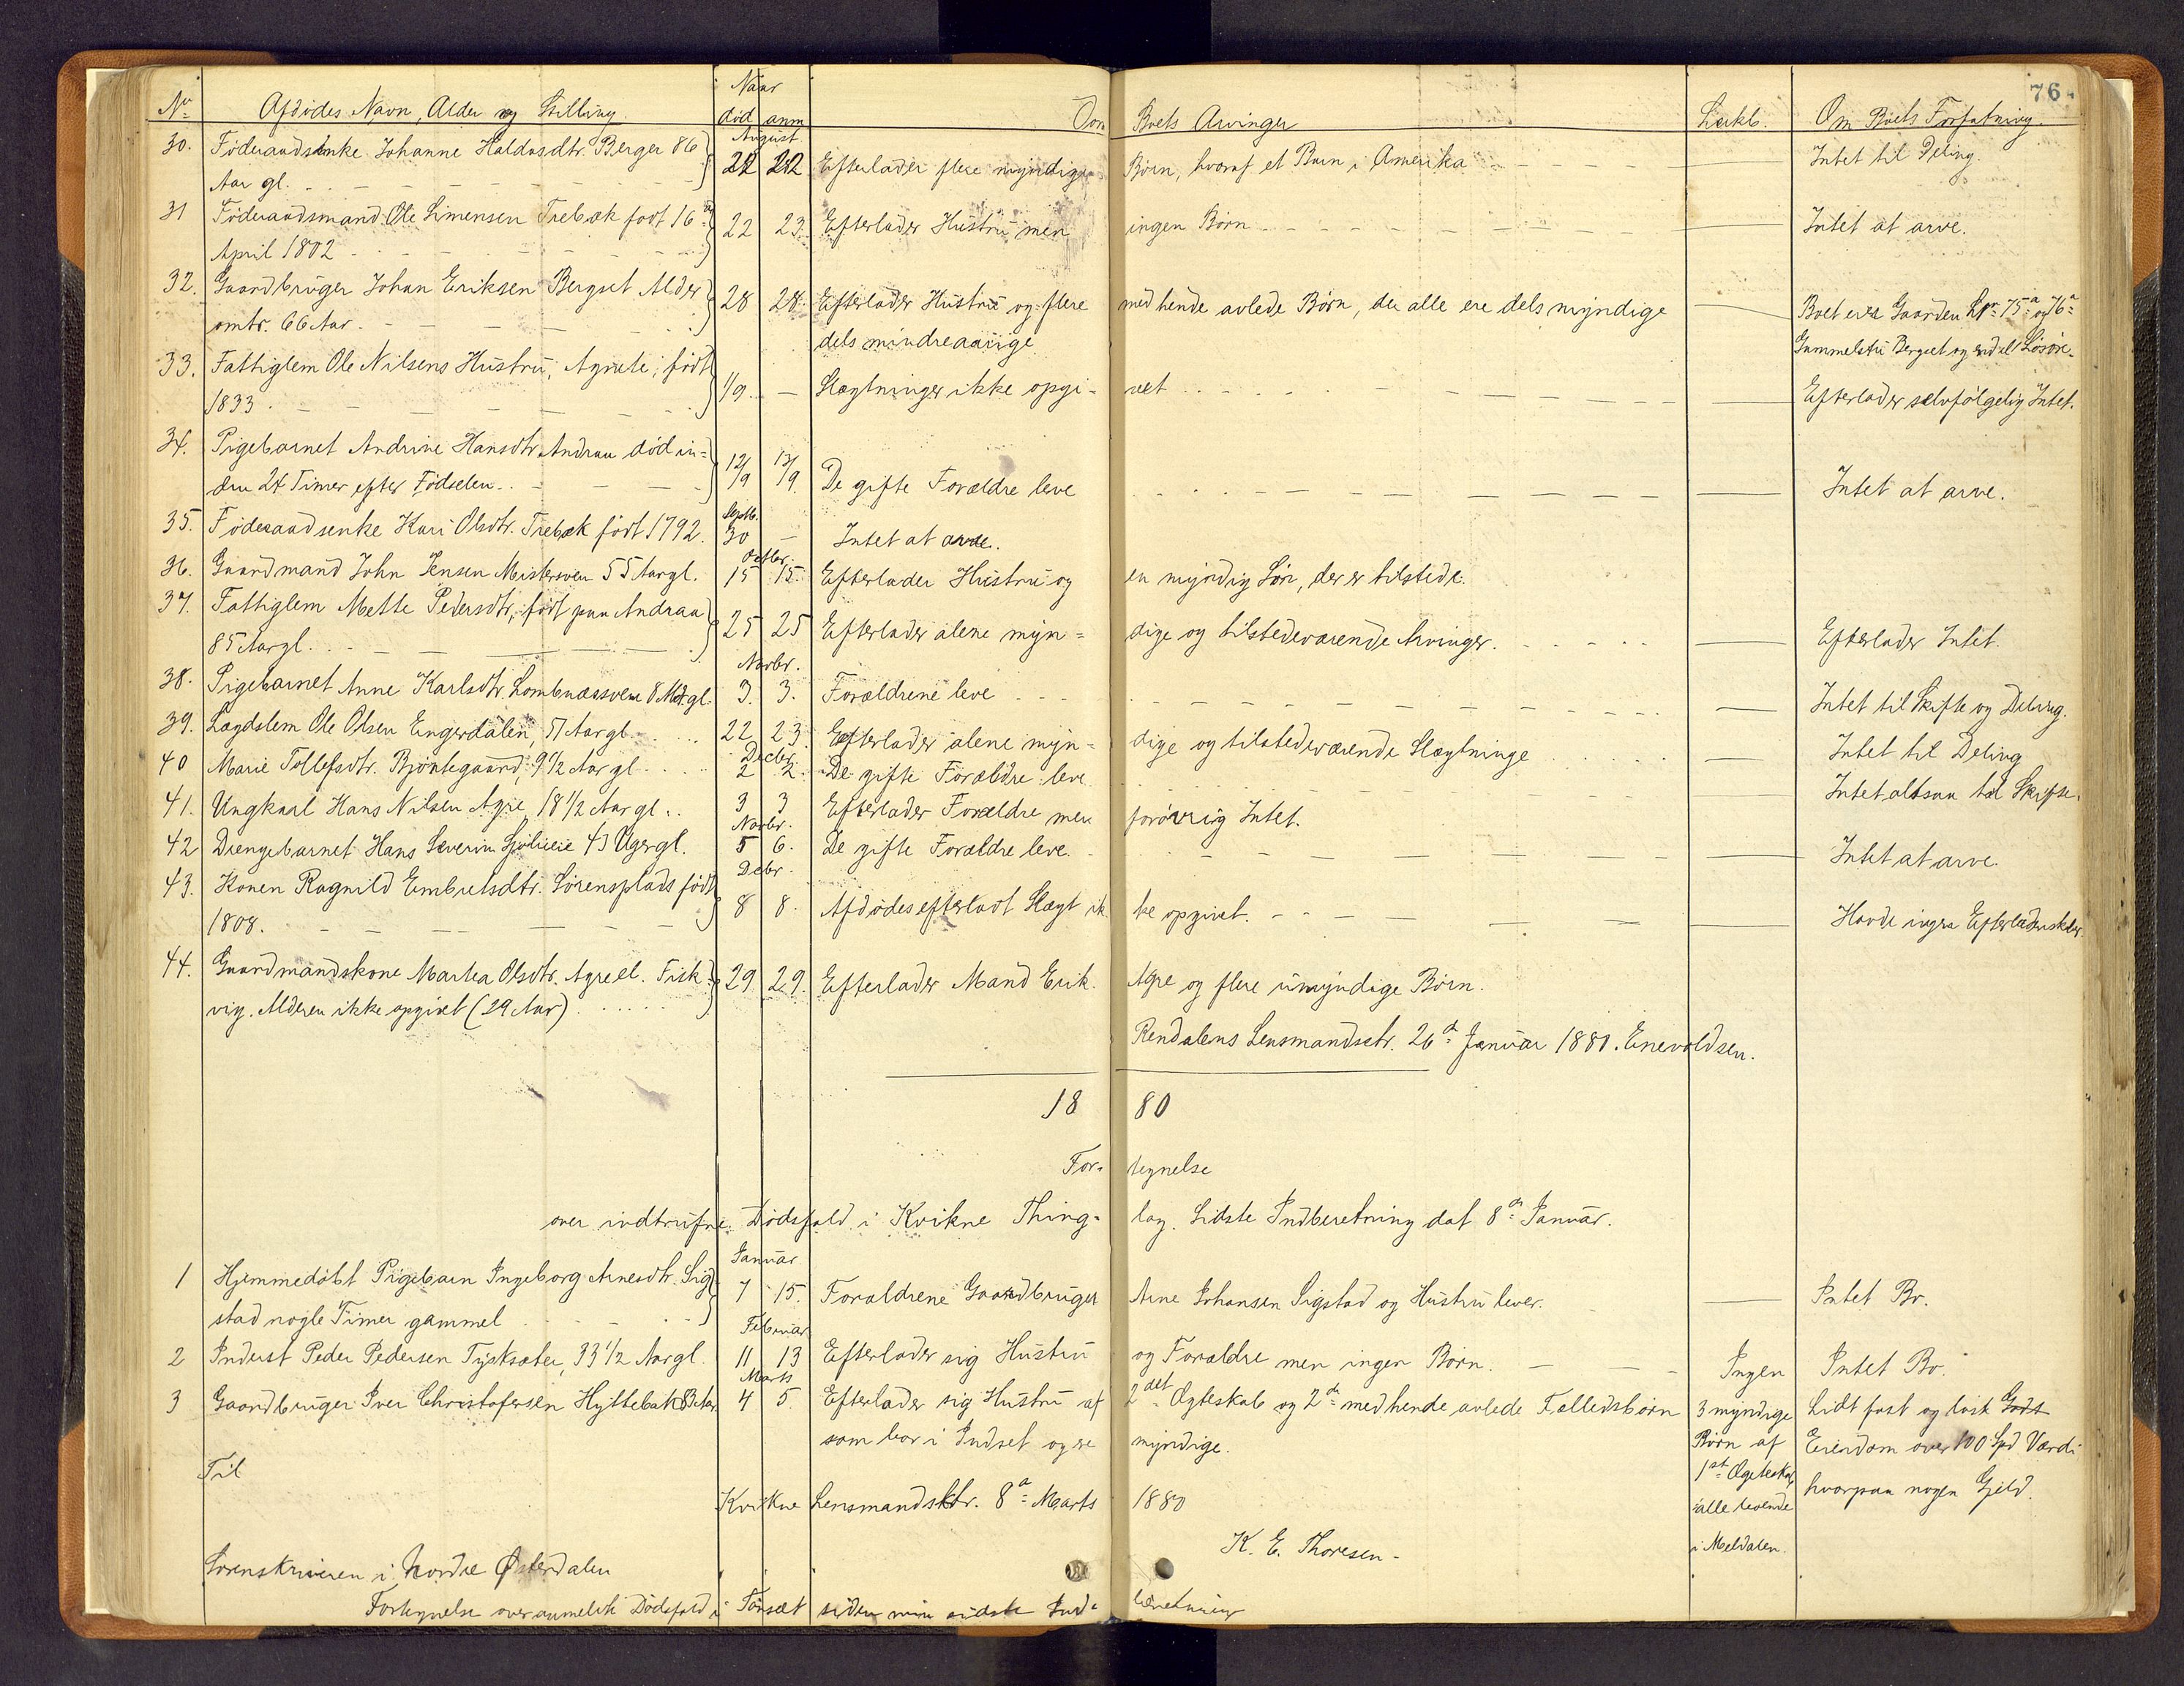 76.
Naar
No Afdødes Navn, Alder og Stilling død anm Om Boets Arvinger Lækb. Om Boets Forfatning.
August
30. Føderaadsenke Johanne Haldosdtr. Berger 86 22 22 Efterlader flere myndige Børn, hvoraf et Barn i Amerika Intet til Deling.
Aar gl.
31 Føderaadsmand Ole Simensen Trebæk født 16de 22 23. Efterlader Hustru men ingen Børn Intet at arve.
April 1802
32. Gaardbruger Johan Eriksen Bergset Alder 28 28. Efterlader Hustru og flere med hende avlede Børn, der alle ere dels myndige Boet eier Gaarden Lnr. 75a og 76a
omtr. 66 Aar. dels mindreaarige Gammelstu Bergset og endel Løsøre.
33. Fattiglem Ole Nilsens Hustru, Agnete, født 1/9. — Slægtninger ikke opgi- vet Efterlader selvfølgelig Intet.
1833.
34. Pigebarnet Andrine Hansdtr. Andraa død in- 12/9 13/9. De gifte Forældre leve Intet at arve.
den 24 Timer efter Fødselen.
Septb.
35. Føderaadsenke Kari Olsdtr. Trebæk født 1792. 30 — Intet at arve.
Octbr.
36. Gaardmand John Jensen Mistersveen 55 Aar gl. 15 15. Efterlader Hustru og en myndig Søn, der er tilstede.
37. Fattiglem Mette Pedersdtr, født paa Andraa 25 25 Efterlader alene myn- dige og tilstedeværende Arvinger. Efterlader Intet.
85 Aar gl.
Novbr.
38. Pigebarnet Anne Karlsdtr. Lombnæssveen 8 Mdr. gl. 3. 3. Forældrene leve Intet til Skifte og Deling.
39. Lægdslem Ole Olsen Engerdalen, 57 Aar gl. 22 23 Efterlader alene myn- dige og tilstedeværende Slægtninge Intet til Deling
Decbr.
40 Marie Tollefsdtr. Bjøntegaard, 9 1/2 Aar gl. 2 2. De gifte Forældre leve Intet altsaa til Skifte.
41. Ungkarl Hans Nilsen Agre, 18 1/2 Aar gl. 3 3 Efterlader Forældre men forøvrig Intet.
Novbr.
42 Drengebarnet Hans Severin Sjølieie 43 Uger gl. 5 6. De gifte Forældre leve. Intet at arve.
Debr.
43. Konen Ragnild Embretsdtr. Sørensplads født 8 8. Afdødes efterladt Slægt ik- ke opgivet. Havde ingen Efterladenskaber.
1808.
44. Gaardmandskone Martea Olsdtr. Agre ell. Fisk- 29 29. Efterlader Mand Erik Agre og flere umyndige Børn.
vig. Alderen ikke opgivet (29 Aar)
Rendalens Lensmandsctr. 26de Januar 1880. Enevoldsen.
1880
For- tegnelse
over indtrufne Dødsfald i Kvikne Thing- lag. Sidste Indberetning dat 8de Januar.
Januar
1 Hjemmedøbt Pigebarn Ingeborg Arnesdtr. Sig- 7 15. Forældrene Gaardbruger Arne Johansen Sigstad og Hustru lever. Intet Bo.
stad nogle Timer gammel
Februar
2 Inderst Peder Pedersen Tysksæter, 33 1/2 Aar gl. 11 13 Efterlader sig Hustru og Forældre men ingen Børn. Ingen Intet Bo.
Marts
3 Gaardbruger Iver Christofersen Hyttebak 83 Aar 4 5. Efterlader sig Hustru af 2det Ægteskab og 2de med hende avlede Fælledsbørn 3 myndige Lidt fast og løst Gods
som bor i Indset og ere myndige. Børn af Eiendom over 100 Spd Værdi
Til 1ste Ægteskab hvorpaa nogen Gjeld.
Kvikne Lensmandsktr. 8de Marts 1880 alle levende
K. E. Thoresen. i Meldalen.
Sorenskriveren i Nordre Østerdalen
Fortegnelse over anmeldte Dødsfald i Tønsæt siden min sidste Ind- beretning